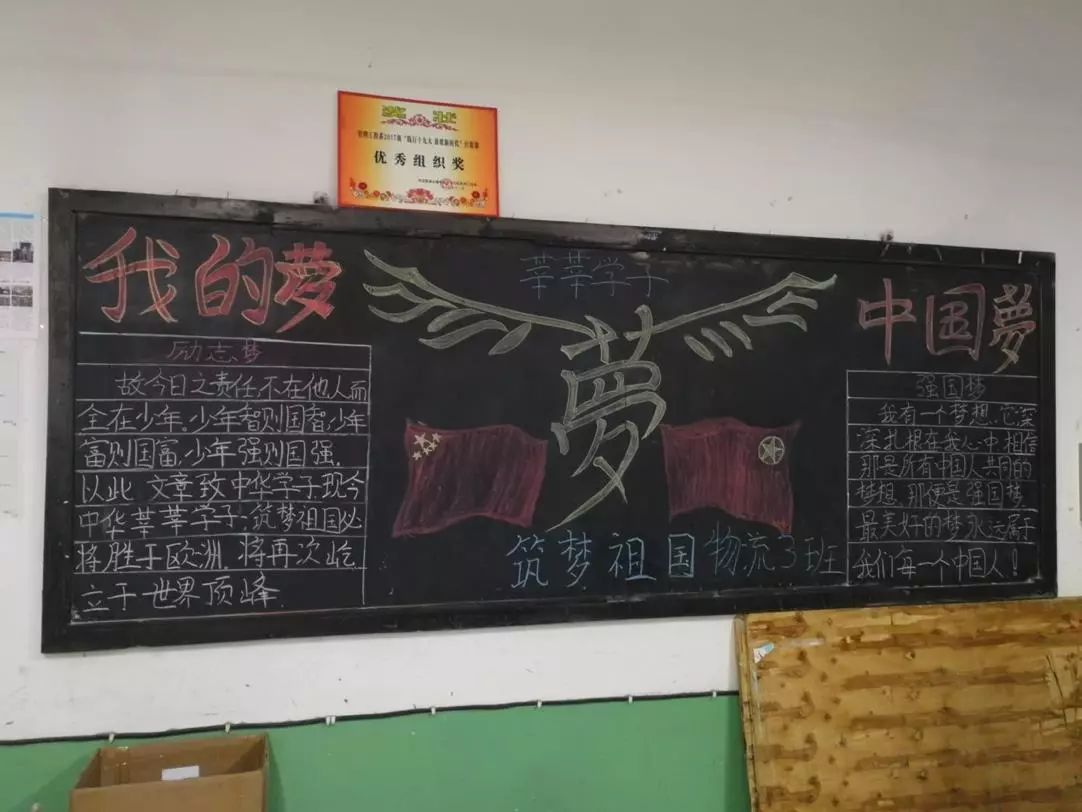 优秀组织奖
我的夢
励志梦
故今日之责任,不在他人而
全在少年。少年智则国智,少年
富则国富,少年强则国强.
以此 文章致中华学子现今
中华莘莘学子、筑梦祖国必
将胜于欧洲,将再次屹
立于世界顶峰
莘莘学子
夢
筑梦祖国物流3班
中国夢
强国梦
我有一个梦想,它深
深扎根在我心中,相信
那是所有中国人共同的
梦想,那便是强国梦,
最美好的梦永远属于
我们每一个中国人!